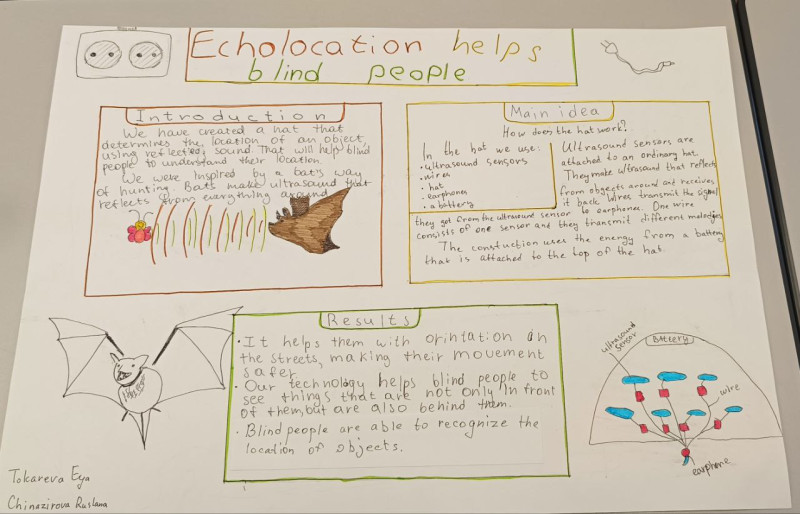 Echolocation helps
blind people
Introduction
We have created a hat that
determines the location of an object,
using reflected sound. That will help blind
people to understand their location.
We were inspired by a bat's way
of hunting. Bats make ultrasound that
reflects from everything around
Main idea
How does the hat work?
In the hat we use:
• ultrasound sensors
• wires
• hat
• earphones
• a battery
Ultrasound sensors are
attached to an ordinary hat.
They make ultrasound that reflects
from objects around and receives
it back. Wires transmit the signal
they got from the ultrasound sensor to earphones. One wire
consists of one sensor and they transmit different melodies
The constuction uses the energy from a battery
that is attached to the top of the hat.
Results
• It helps them with orintation in
the streets, making their movement
safer
• Our technology helps blind people to
see things that are not only in front
of them, but are also behind them.
• Blind people are able to recognize the
location of objects.
ultrasound
sensor
BATTERY
wire
earphone
Tokareva Eya
Chinazirova Ruslana